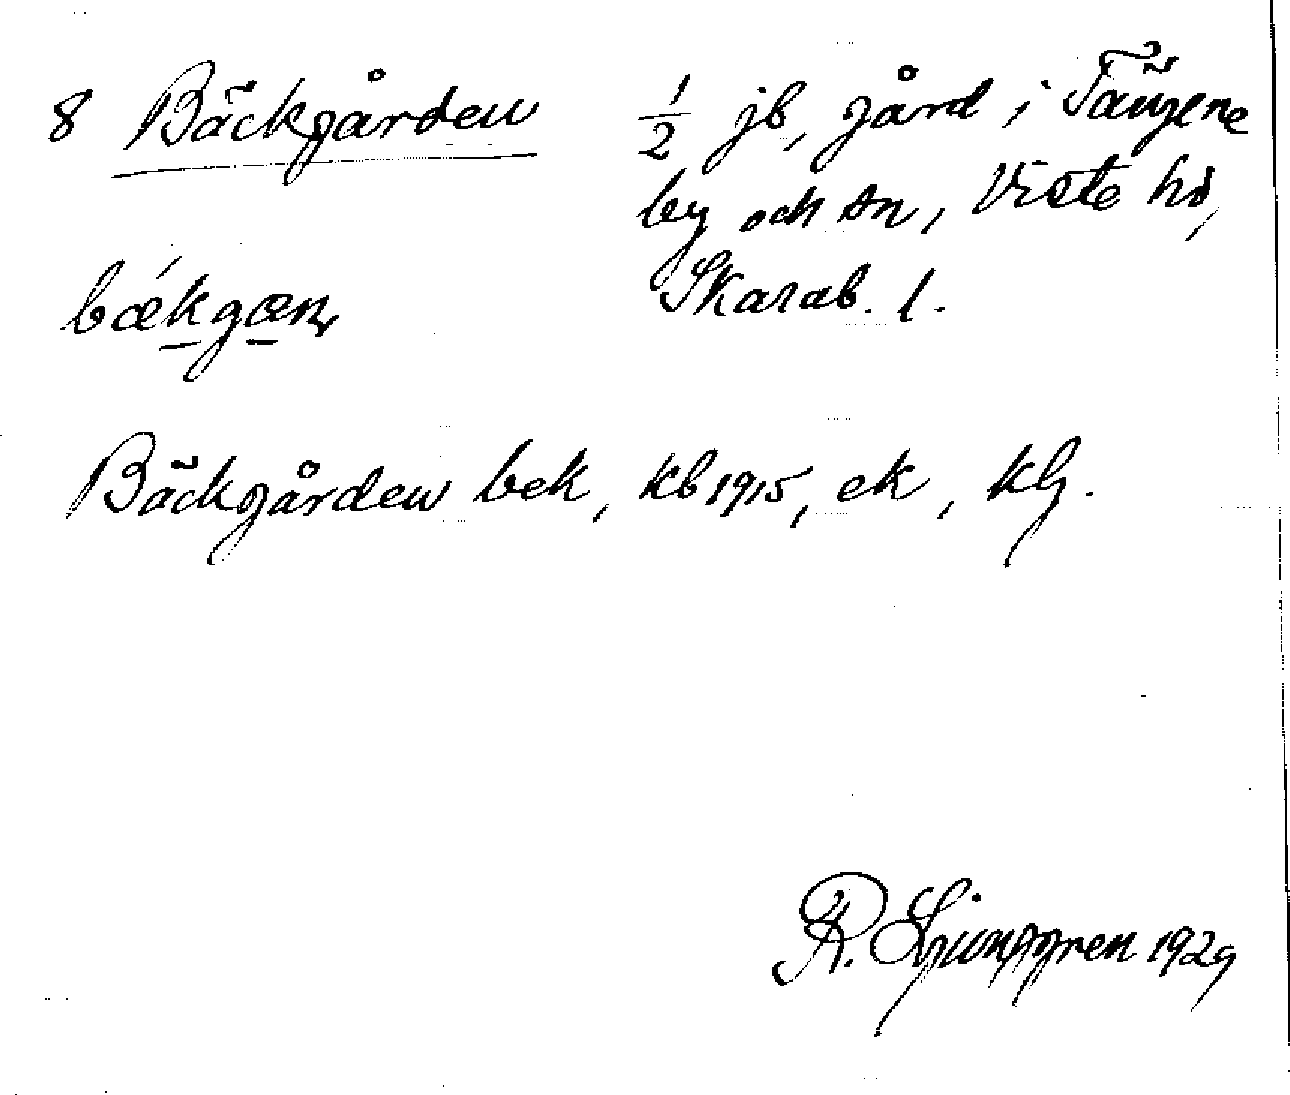 8 Bäckgården 1/2 jb, gård i Tängene
by och sn, Viste hd,
bǽkgæn Skarab. l.
Bäckgården bek, kb 1915, ek, klj.
R. Ljunggren 1929